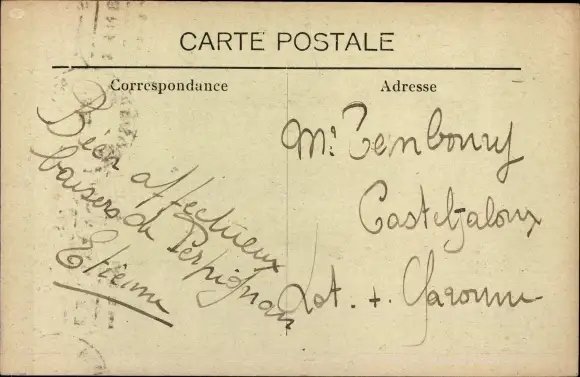 CARTE POSTALE
Correspondance
Adresse
Bien affectueux
baisers de Perpignan
Etienne
Mr Temboury
Casteljaloux
Lot. + Garonne